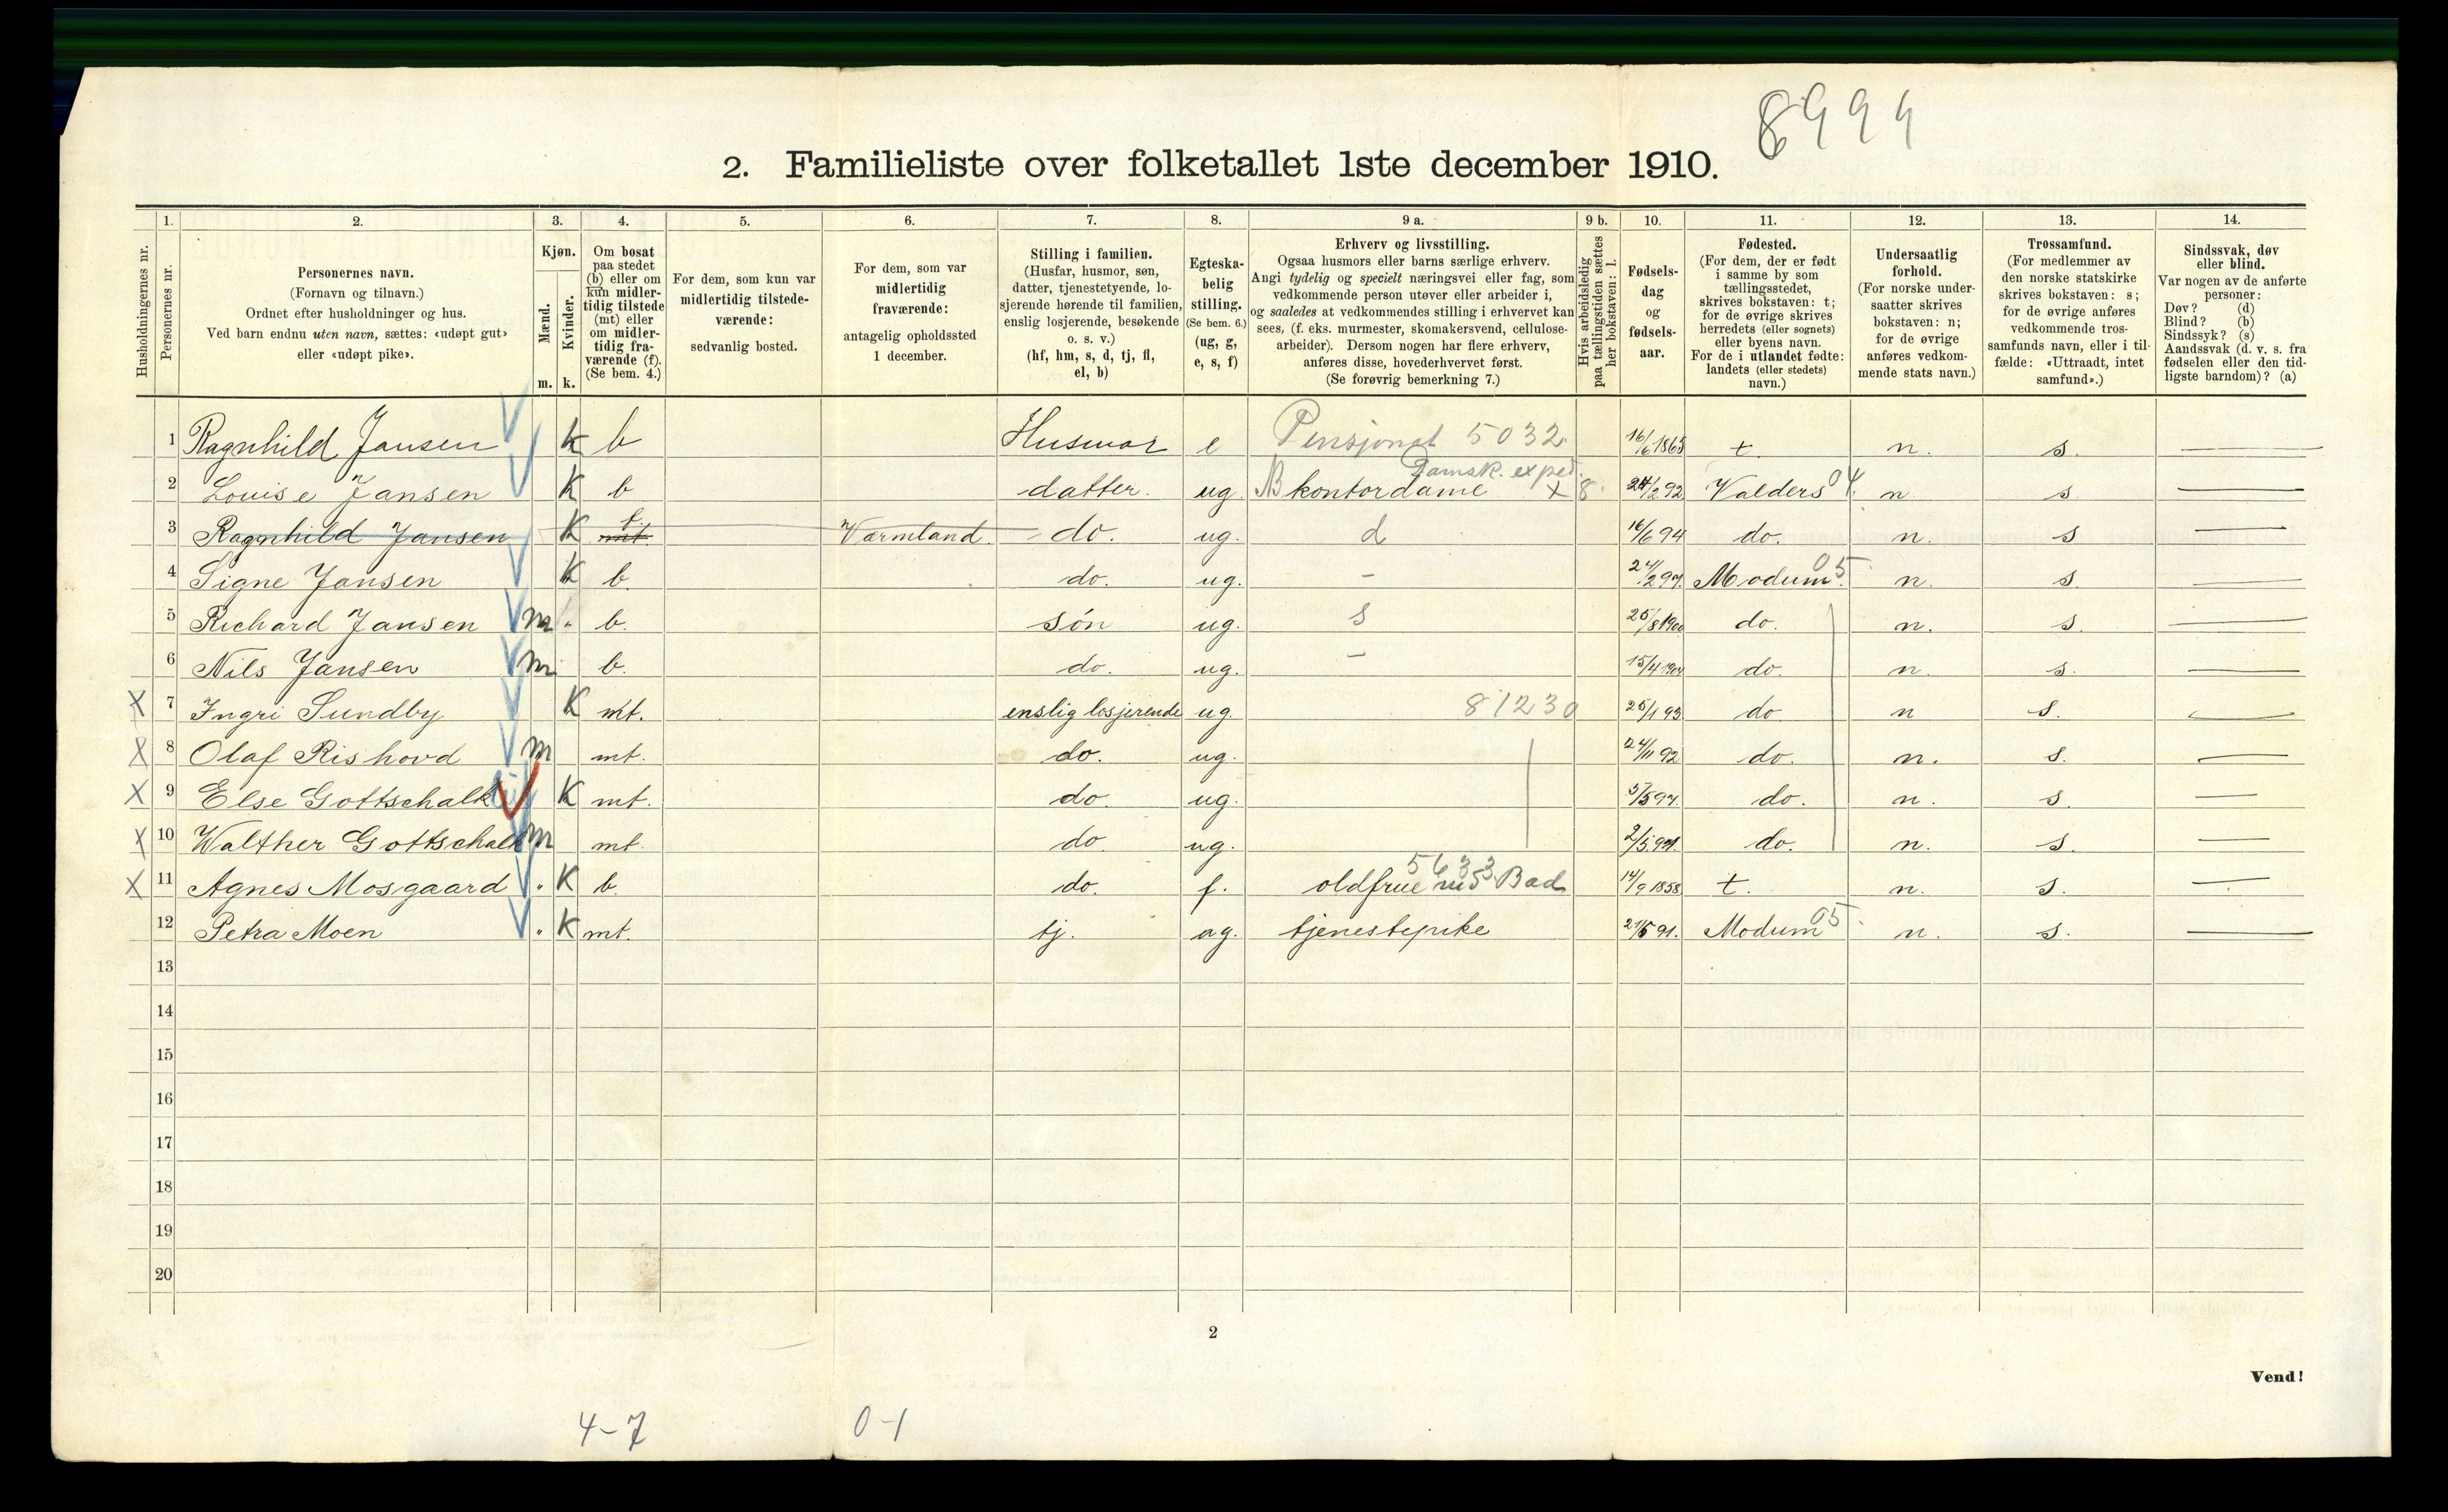 8999
2. Familieliste over folketallet 1ste december 1910.
1. 2. 3. 4. 5. 6. 7. 8. 9 a. 9 b. 10. 11. 12. 13. 14.
Husholdningernes nr.
Personernes nr.
Personernes navn.
(Fornavn og tilnavn.)
Ordnet efter husholdninger og hus.
Ved barn endnu uten navn, sættes: «udøpt gut»
eller «udøpt pike».
Kjøn.
Mænd.
Kvinder.
m. k.
Om bosat
paa stedet
(b) eller om
kun midler-
tidig tilstede
(mt) eller
om midler-
tidig fra-
værende (f).
(Se bem. 4.)
For dem, som kun var
midlertidig tilstede-
værende:
sedvanlig bosted.
For dem, som var
midlertidig
fraværende:
antagelig opholdssted
1 december.
Stilling i familien.
(Husfar, husmor, søn,
datter, tjenestetyende, lo-
sjerende hørende til familien,
enslig losjerende, besøkende
o. s. v.)
(hf, hm, s, d, tj, fl,
el, b)
Egteska-
belig
stilling.
(Se bem. 6.)
(ug, g,
e, s, f)
Erhverv og livsstilling.
Ogsaa husmors eller barns særlige erhverv.
Angi tydelig og specielt næringsvei eller fag, som
vedkommende person utøver eller arbeider i,
og saaledes at vedkommendes stilling i erhvervet kan
sees, (f. eks. murmester, skomakersvend, cellulose-
arbeider). Dersom nogen har flere erhverv,
anføres disse, hovederhvervet først.
(Se forøvrig bemerkning 7.)
Hvis arbeidsledig
paa tællingstiden sættes
her bokstaven: l.
Fødsels-
dag
og
fødsels-
aar.
Fødested.
(For dem, der er født
i samme by som
tællingsstedet,
skrives bokstaven: t;
for de øvrige skrives
herredets (eller sognets)
eller byens navn.
For de i utlandet fødte:
landets (eller stedets)
navn.)
Undersaatlig
forhold.
(For norske under-
saatter skrives
bokstaven: n;
for de øvrige
anføres vedkom-
mende stats navn.)
Trossamfund.
(For medlemmer av
den norske statskirke
skrives bokstaven: s;
for de øvrige anføres
vedkommende tros-
samfunds navn, eller i til-
fælde: «Uttraadt, intet
samfund».)
Sindssvak, døv
eller blind.
Var nogen av de anførte
personer:
Døv? (d)
Blind? (b)
Sindssyk? (s)
Aandssvak (d. v. s. fra
fødselen eller den tid-
ligste barndom)? (a)
1 Ragnhild Jansen K b Husmor e Pensjonat 5032 16/6 1865 t. n. s.
Damsk. exped.
2 Louise Jansen K b datter. ug. B kontordame x 8. 24/2 92 Valders 04 n s
3 Ragnhild Jansen K f. mt. Värmland. do. ug. d 16/6 94 do. n. s
4 Signe Jansen K b. do. ug. - 24/2 97. Modum 05 n. s
5 Richard Jansen m b. són ug. s 25/8 1900 do. n. s.
6 Nils Jansen m b. do. ug. - 15/4 1904 do. n. s.
X 7 Ingri Sundby K mt. enslig losjerende ug. 81230 25/1 93 do n s.
X 8 Olaf Rishovd m mt. do. ug. 24/11 92 do. n. s.
X 9 Else Gottschalk K mt. do. ug. 5/5 97. do. n. s.
X 10 Walther Gottschalk m mt. do. ug. do. n. s.
X 11 Agnes Mosgaard K b. do. f. oldfrue 5633 Bad 14/9 1858 t. n. s.
12 Petra Moen K mt. tj. ug. tjenestepike 21/5 91. Modum 05 n. s.
13
14
15
16
17
18
19
20
2
Vend!
4-7 0-1